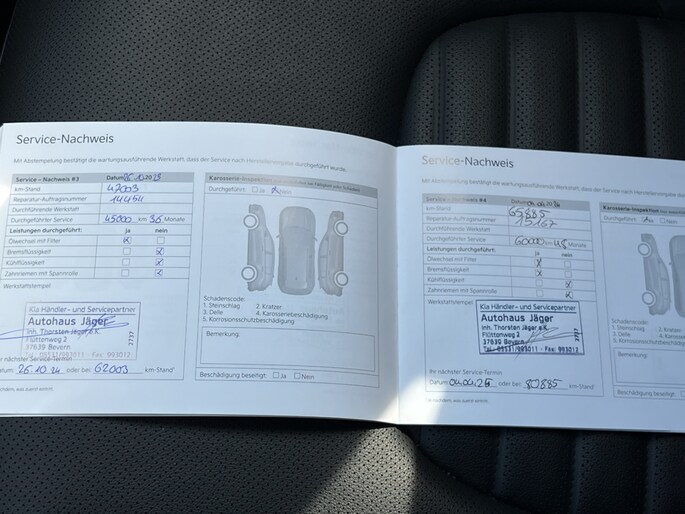 Service-Nachweis
Mit Abstempelung bestätigt die wartungsausführende Werkstatt, dass der Service nach Herstellervorgabe durchgeführt wurde.
Service – Nachweis #3 Datum
km-Stand 47003
Reparatur-Auftragsnummer 14454
Durchführende Werkstatt
Durchgeführter Service 45000 km 36 Monate
Leistungen durchgeführt: ja nein
Ölwechsel mit Filter
Bremsflüssigkeit
Kühlflüssigkeit
Zahnriemen mit Spannrolle
Werkstattstempel
Kia Händler- und Servicepartner
Autohaus Jäger
Inh. Thorsten Jäger e.K.
Flütenweg 2
37639 Bevern
Tel. 05531/993011 - Fax: 993012
2737
Ihr nächster Service-Termin
Datum: 26.10.24 oder bei: 62003 km-Stand¹
Karosserie-Inspektion
Durchgeführt: Ja Nein
Schadenscode:
1. Steinschlag 2. Kratzer
3. Delle 4. Karosseriebeschädigung
5. Korrosionsschutzbeschädigung
Bemerkung:
Beschädigung beseitigt Ja Nein
Service-Nachweis
Mit Abstempelung bestätigt die wartungsausführende Werkstatt, dass der Service nach Herstellervorgabe
Service – Nachweis #4 Datum
km-Stand 65885
Reparatur-Auftragsnummer 15167
Durchführende Werkstatt
Durchgeführter Service 60000 km 48 Monate
Leistungen durchgeführt: ja nein
Ölwechsel mit Filter
Bremsflüssigkeit
Kühlflüssigkeit
Zahnriemen mit Spannrolle
Werkstattstempel
Kia Händler- und Servicepartner
Autohaus Jäger
Inh. Thorsten Jäger e.K.
Flütenweg 2
37639 Bevern
Tel. 05531/993011 - Fax: 993012
2737
Ihr nächster Service-Termin
Datum: 04.04.26 oder bei: 80885 km-Stand¹
Karosserie-Inspektion
Durchgeführt:
Schadenscode:
1. Steinschlag
3. Delle
5. Korrosionsschutz
Bemerkung:
Beschädigung beseitigt